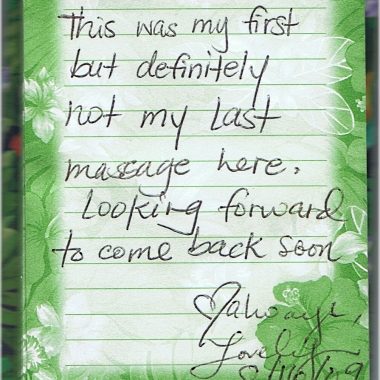 This was my first
but definitely
not my last
massage here.
Looking forward
to come back soon
♡always,